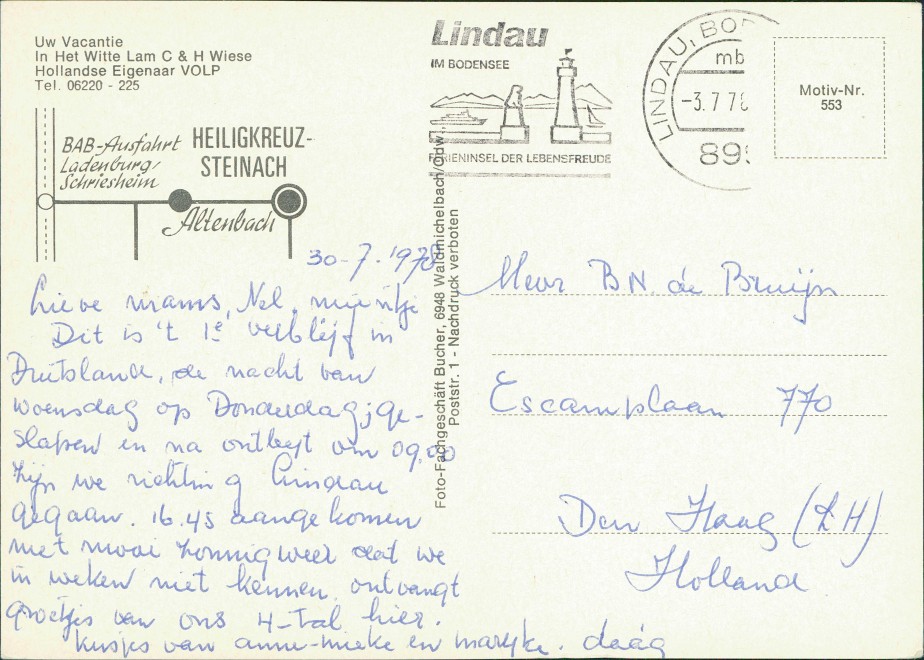 Uw Vacantie
In Het Witte Lam C & H Wiese
Hollandse Eigenaar VOLP
Tel. 06220 - 225
BAB-Ausfahrt
Ladenburg/
Schriesheim
HEILIGKREUZ-
STEINACH
Altenbach
Lindau
IM BODENSEE
FERIENINSEL DER LEBENSFREUDE
LINDAU, BO
mb
-3.7.78
899
Motiv-Nr.
553
Foto-Fachgeschäft Bucher, 6948 Waldmichelbach/Odw.
Poststr. 1 - Nachdruck verboten
30-7-1978
Lieve mams, Nel, mijntje
Dit is 't 1e verblijf in
Duitsland, de nacht van
woensdag op Donderdag ge-
slapen en na ontbijt om 09.00
zijn we richting Lindau
gegaan. 16.45 aangekomen
met mooi zonnig weer dat we
in weken niet kennen. ontvangt
groetjes van ons 4-Tal hier.
kusjes van anne-mieke en maryke. daag
Mevr B.N. de Bruijn
Escamplaan 770
Den Haag (ZH)
Holland